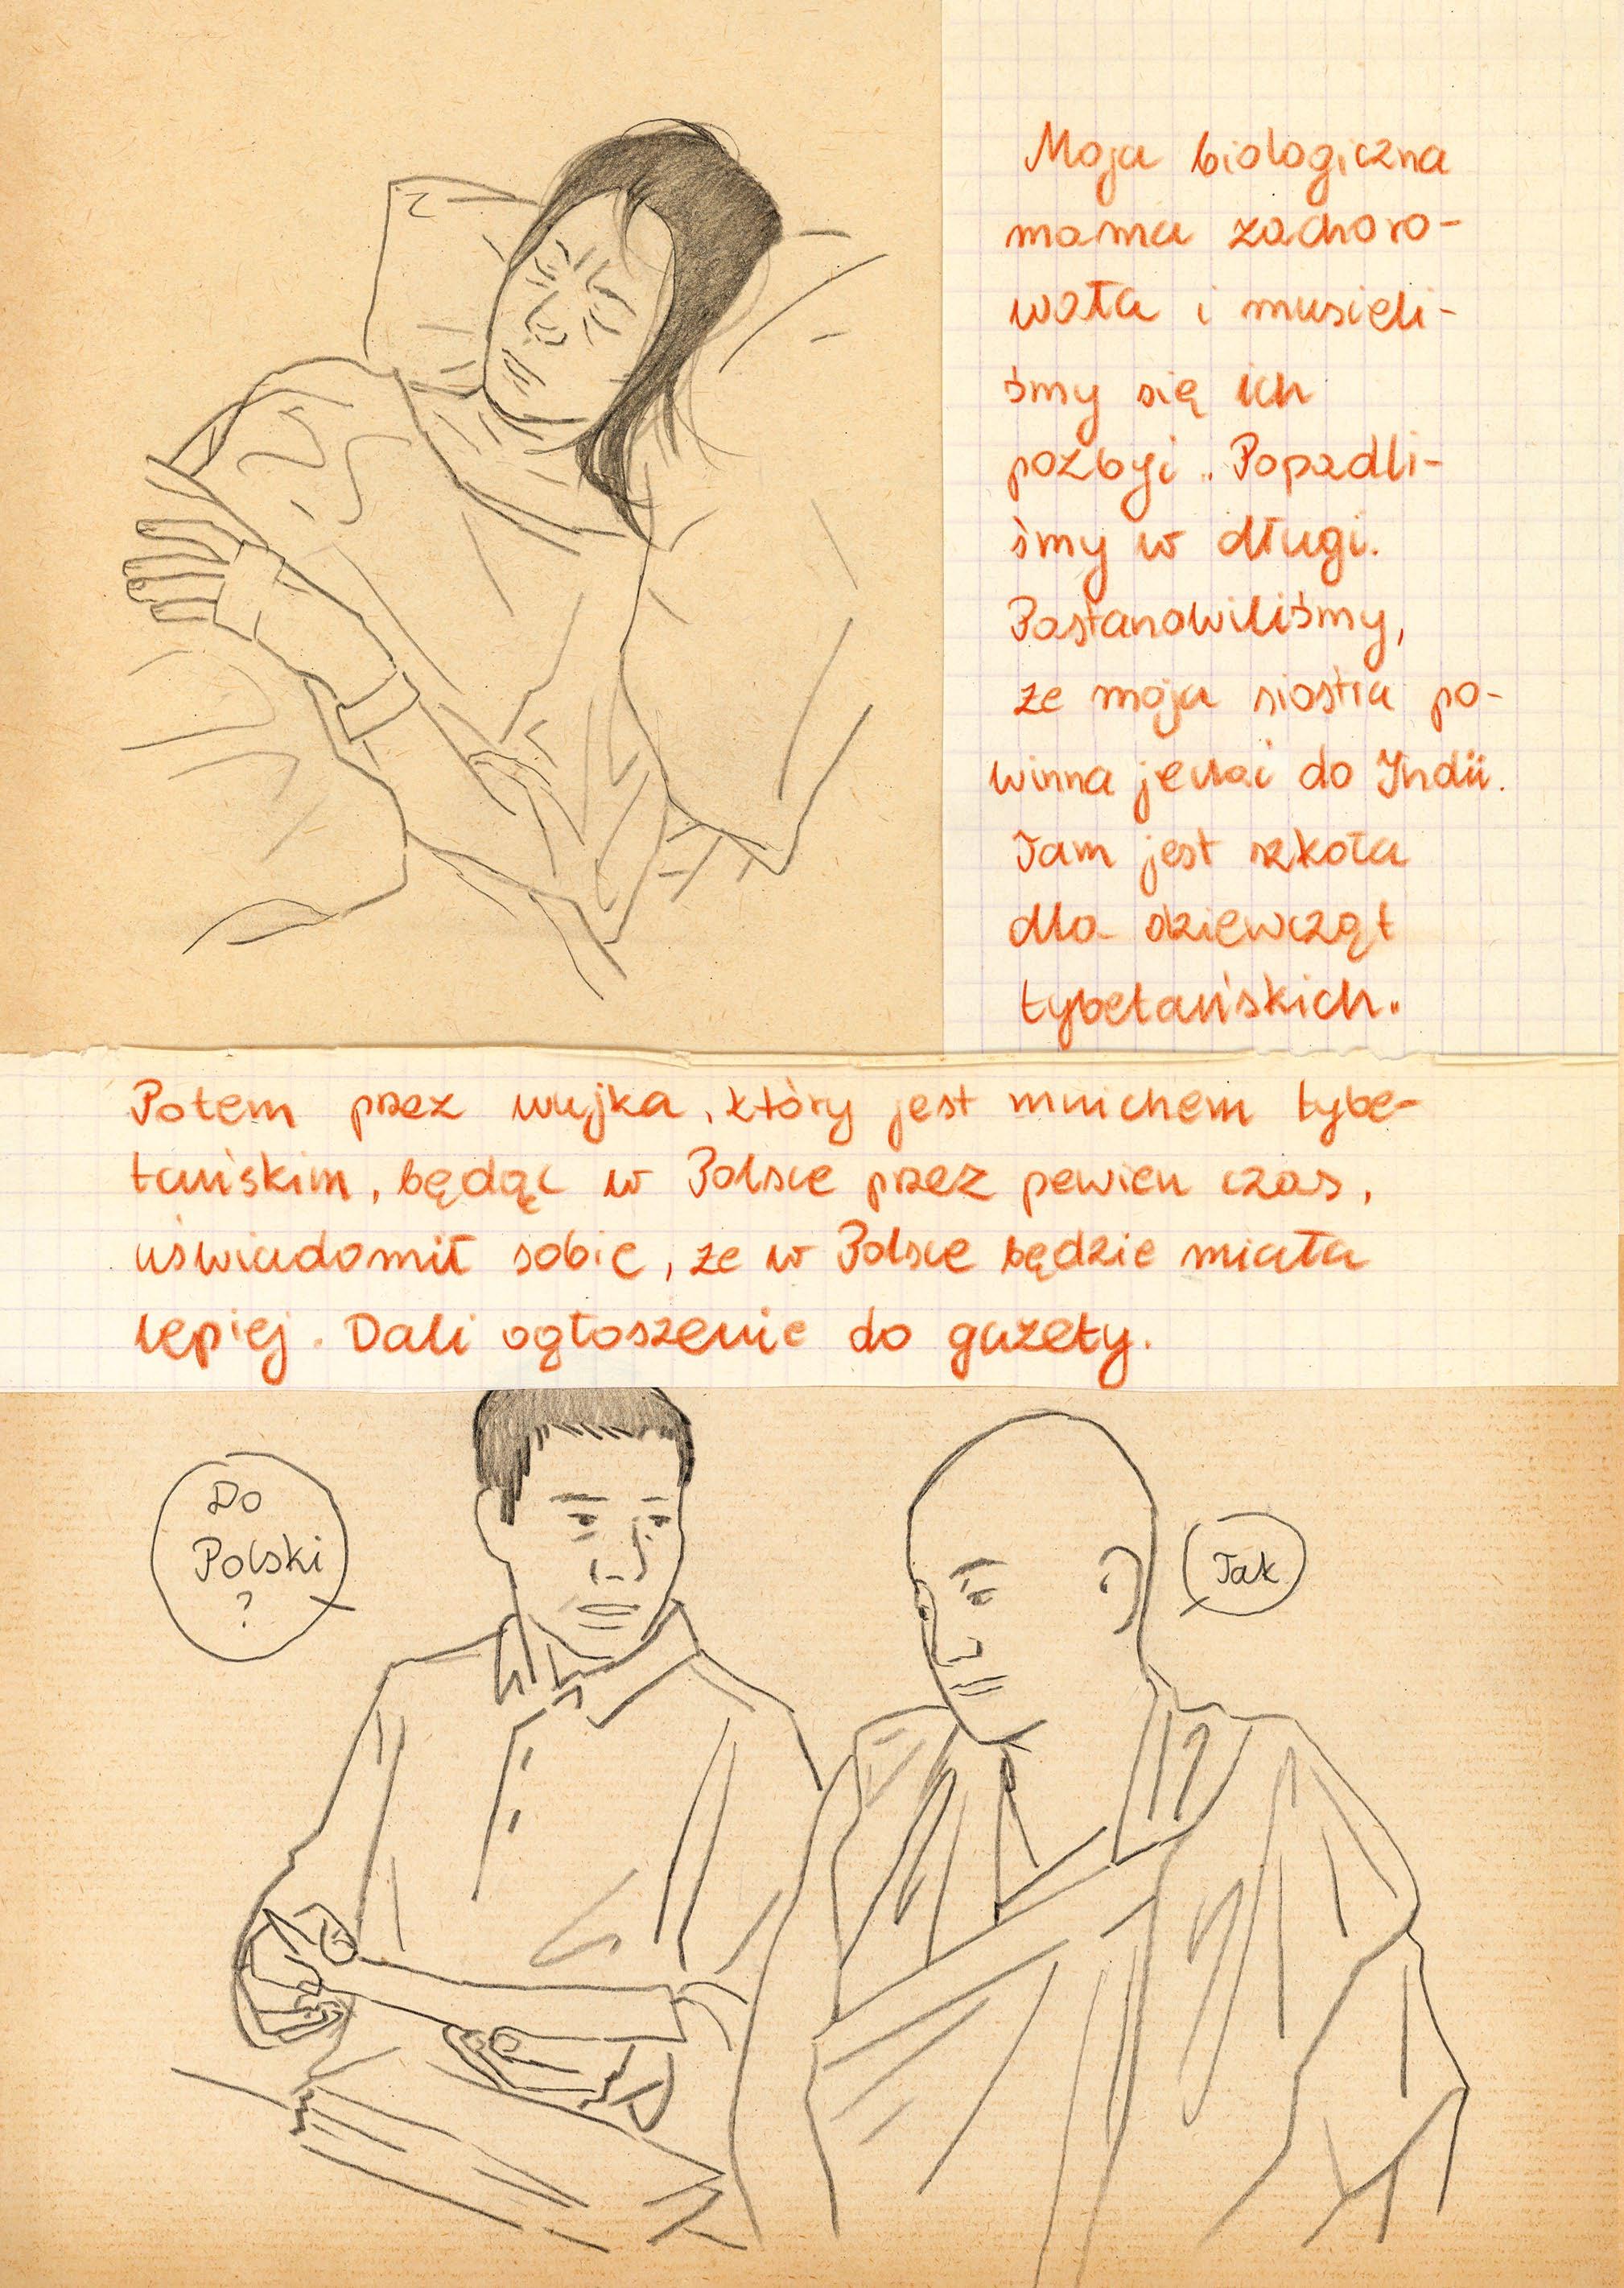 Moja biologiczna
mama zachoro-
wała i musieli-
śmy się ich
pozbyć. Popadli-
śmy w długi.
Postanowiliśmy,
że moja siostra po-
winna jechać do Indii.
Tam jest szkoła
dla dziewcząt
tybetańskich.
Potem przez wujka, który jest mnichem tybe-
tańskim, będąc w Polsce przez pewien czas,
uświadomił sobie, że w Polsce będzie miała
lepiej. Dali ogłoszenie do gazety.
Do
Polski
?
Tak